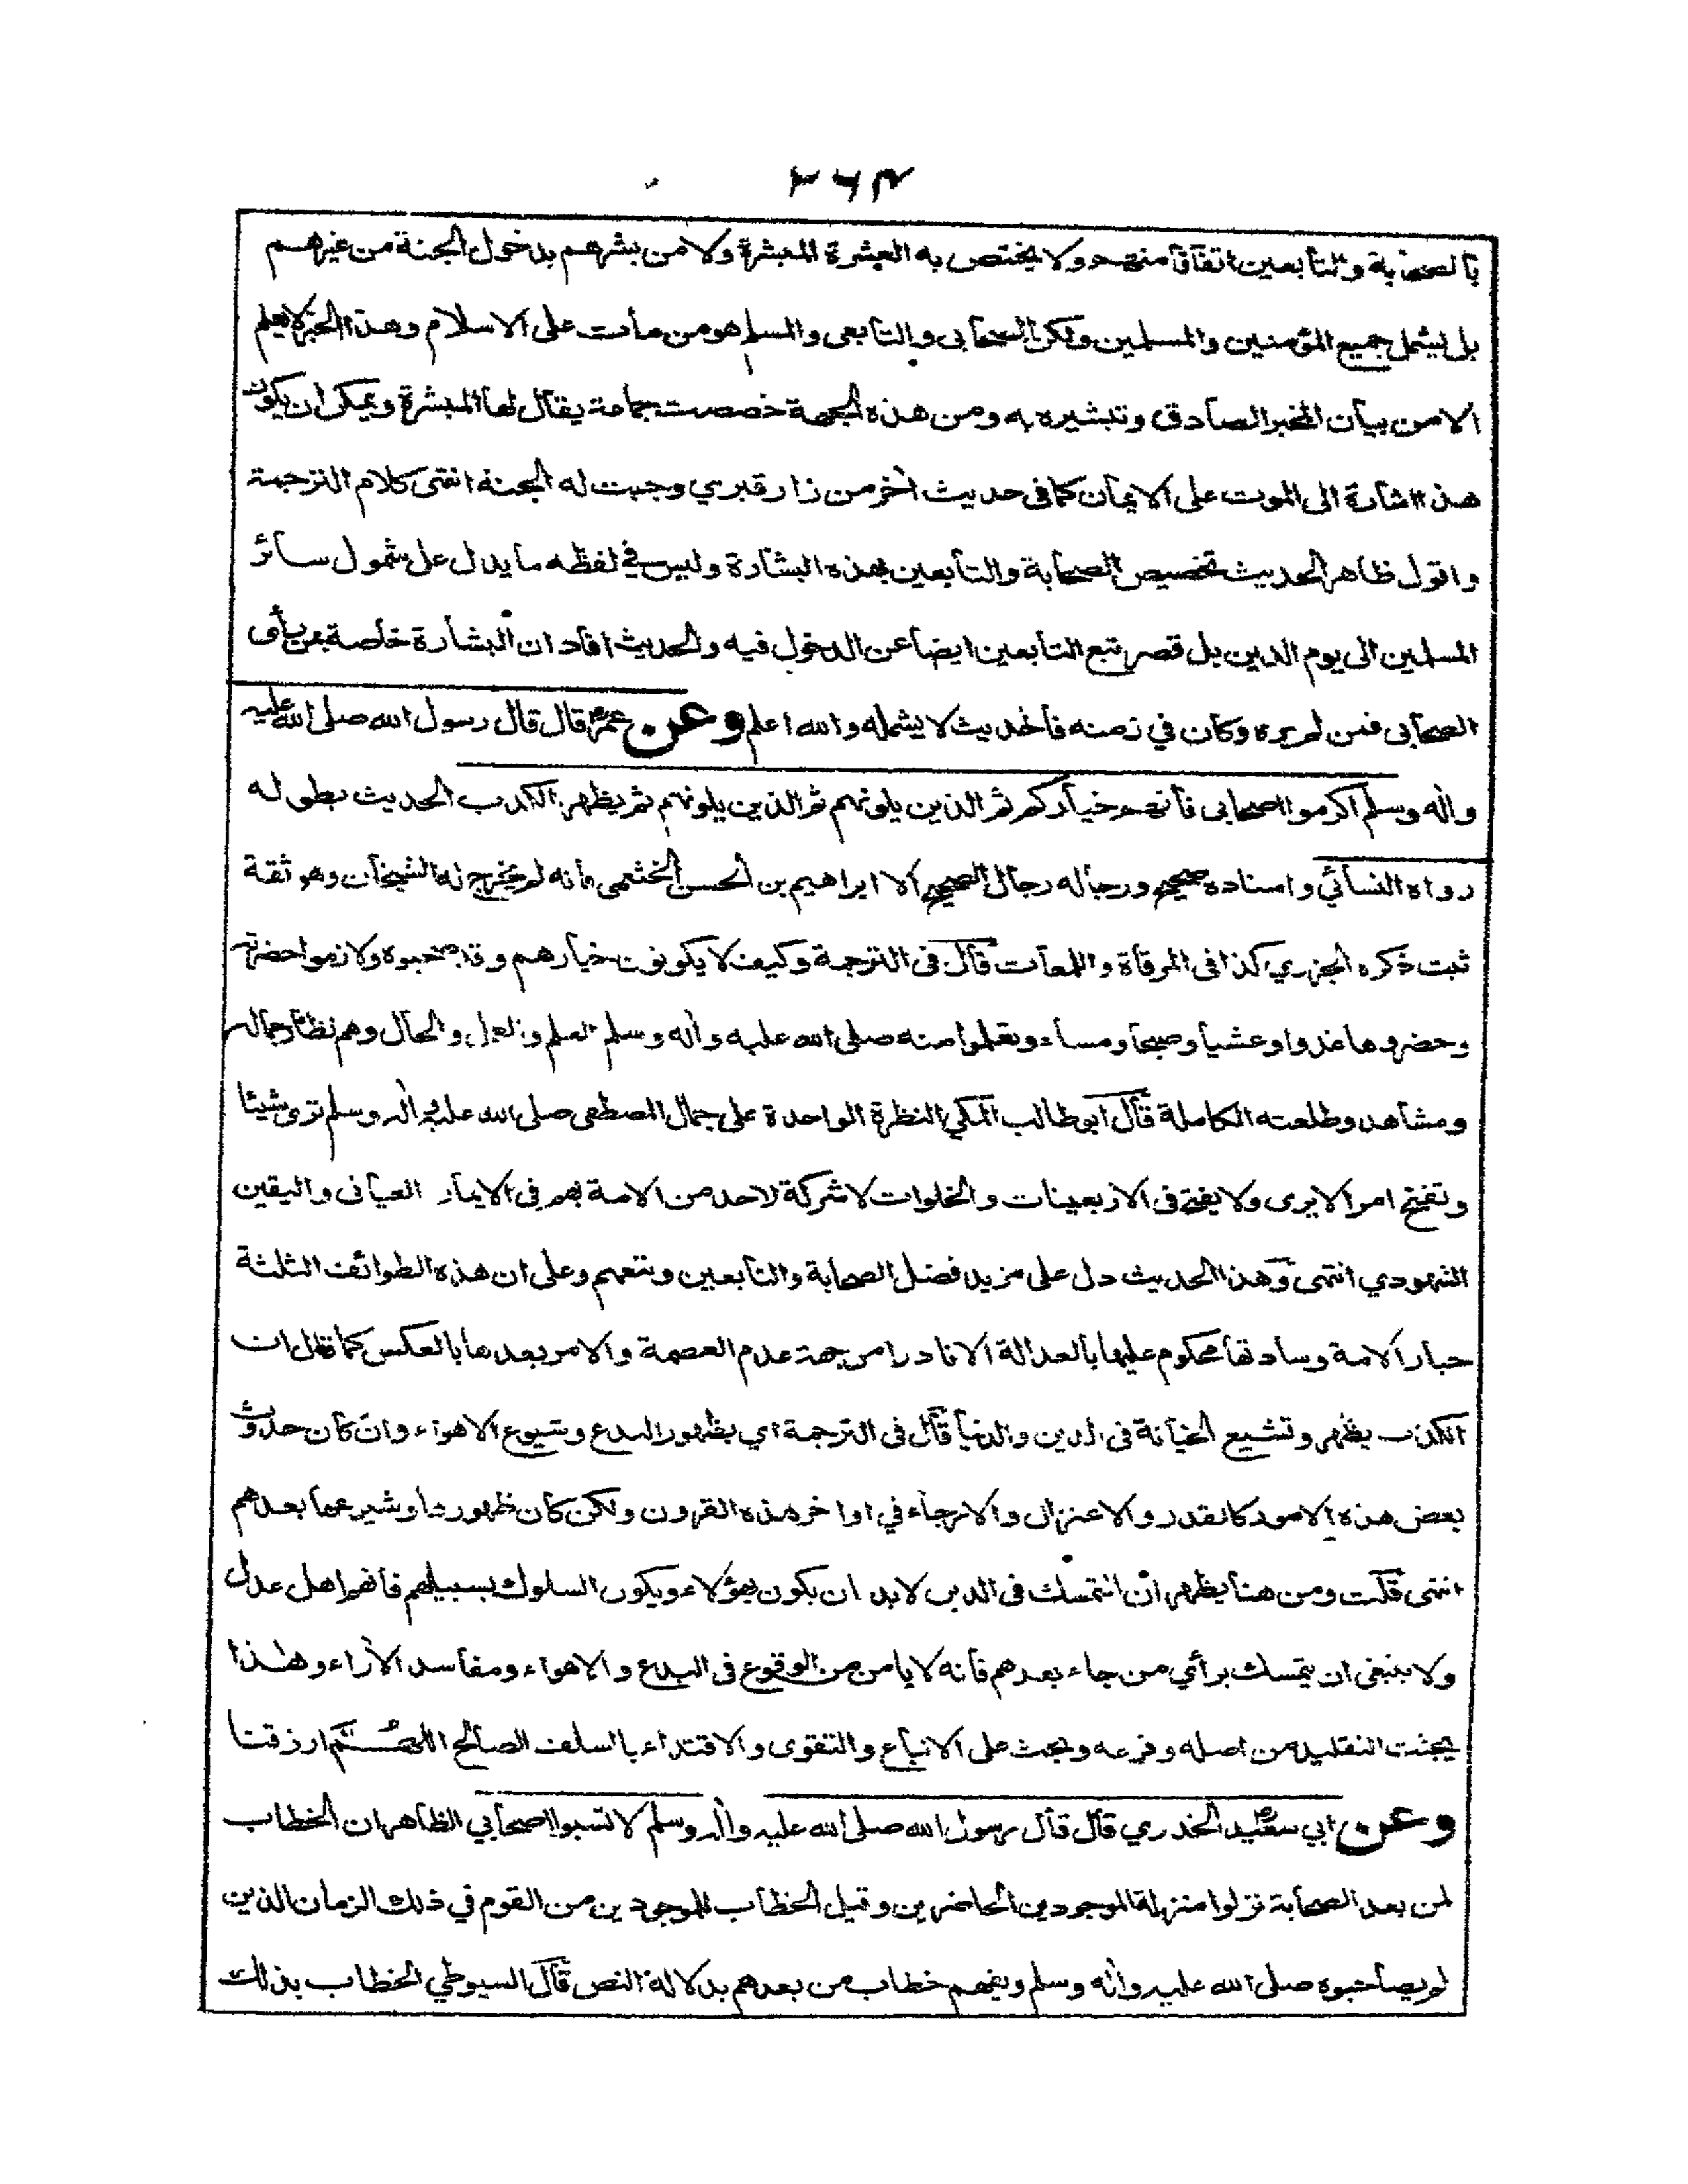 ٢٦٤
بالصحابة والتابعين اتفاقا منهم ولا يختص به العشرة المبشرة ولا من بشرهم بدخول الجنة من غيرهم
بل يشمل جميع المؤمنين والمسلمين ولكن الصحابي والتابعي والمسلم هو من مات على الاسلام وهذا الخبر لا يعلم
الا من بيان المخبر الصادق وتبشيره به ومن هذه الجهة خصصت جماعة يقال لها المبشرة ويمكن ان يكون
هذا اشارة الى الموت على الايمان كما في حديث أخر من زار قبري وجبت له الجنة انتهى كلام الترجمة
واقول ظاهر الحديث تخصيص الصحابة والتابعين بهذه البشارة وليس في لفظه ما يدل على شمول سائر
المسلمين الى يوم الدين بل قصر تبع التابعين ايضا عن الدخول فيه والحديث افاد ان البشارة خاصة بمن رأى
الصحابي فمن لم يره وكان في زمنه فالحديث لا يشمله والله اعلم وعن عمر قال قال رسول الله صلى الله عليه
وأله وسلم اكرموا اصحابى فانهم خياركم ثم الذين يلونهم ثم الذين يلونهم ثم يظهر الكذب الحديث بطوله
رواه النسائي واسناده صحيح ورجاله رجال الصحيح الا ابراهيم بن الحسن الخثعمى فانه لم يخرج له الشيخان وهو ثقة
ثبت ذكره الجزري كذا فى المرقاة واللمعات قال فى الترجمة وكيف لا يكونون خيارهم وقد صحبوه ولازموا حضرته
وحضروها غدوا وعشيا وصبحا ومساء وتعلموا منه صلى الله عليه وأله وسلم العلم والعمل والحال وهم نظار جماله
ومشاهد وطلعته الكاملة قال ابو طالب المكي النظرة الواحدة على جمال المصطفى صلى الله عليه وأله وسلم ترى شيئا
وتفتح امرا لا يرى ولا يفتح فى الاربعينات والخلوات لا شركة لاحد من الامة بهم فى الايمان العيانى واليقين
الشهودي انتهى وهذا الحديث دل على مزيد فضل الصحابة والتابعين وتبعهم وعلى ان هذه الطوائف الثلثة
خيار الامة وسادتها محكوم عليها بالعدالة الا نادرا من جهة عدم العصمة والامر بعدها بالعكس كما قال ان
الكذب يظهر وتشيع الخيانة فى الدين والدنيا قال فى الترجمة اي بظهور البدع وشيوع الاهواء وان كان حدوث
بعض هذه الامور كالقدر والاعتزال والارجاء في اواخر هذه القرون ولكن كان ظهورها وشيوعها بعدهم
انتهى قلت ومن هنا يظهر ان التمسك فى الدين لابد ان يكون بهؤلاء ويكون السلوك بسبيلهم فانهم اهل عدل
ولا ينبغى ان يتمسك برأي من جاء بعدهم فانه لا يامن من الوقوع فى البدع والاهواء ومفاسد الأراء وهذا
يجتث التقليد من اصله وفرعه ويحث على الاتباع والتقوى والاقتداء بالسلف الصالح اللهم ارزقنا
وعن ابي سعيد الخدري قال قال رسول الله صلى الله عليه وأله وسلم لا تسبوا اصحابي الظاهر ان الخطاب
لمن بعد الصحابة نزلوا منزلة الموجودين الحاضرين وقيل الخطاب للموجودين من القوم في ذلك الزمان الذين
لم يصاحبوه صلى الله عليه وأله وسلم ويفهم خطاب من بعدهم بدلالة النص قال السيوطي الخطاب بذلك